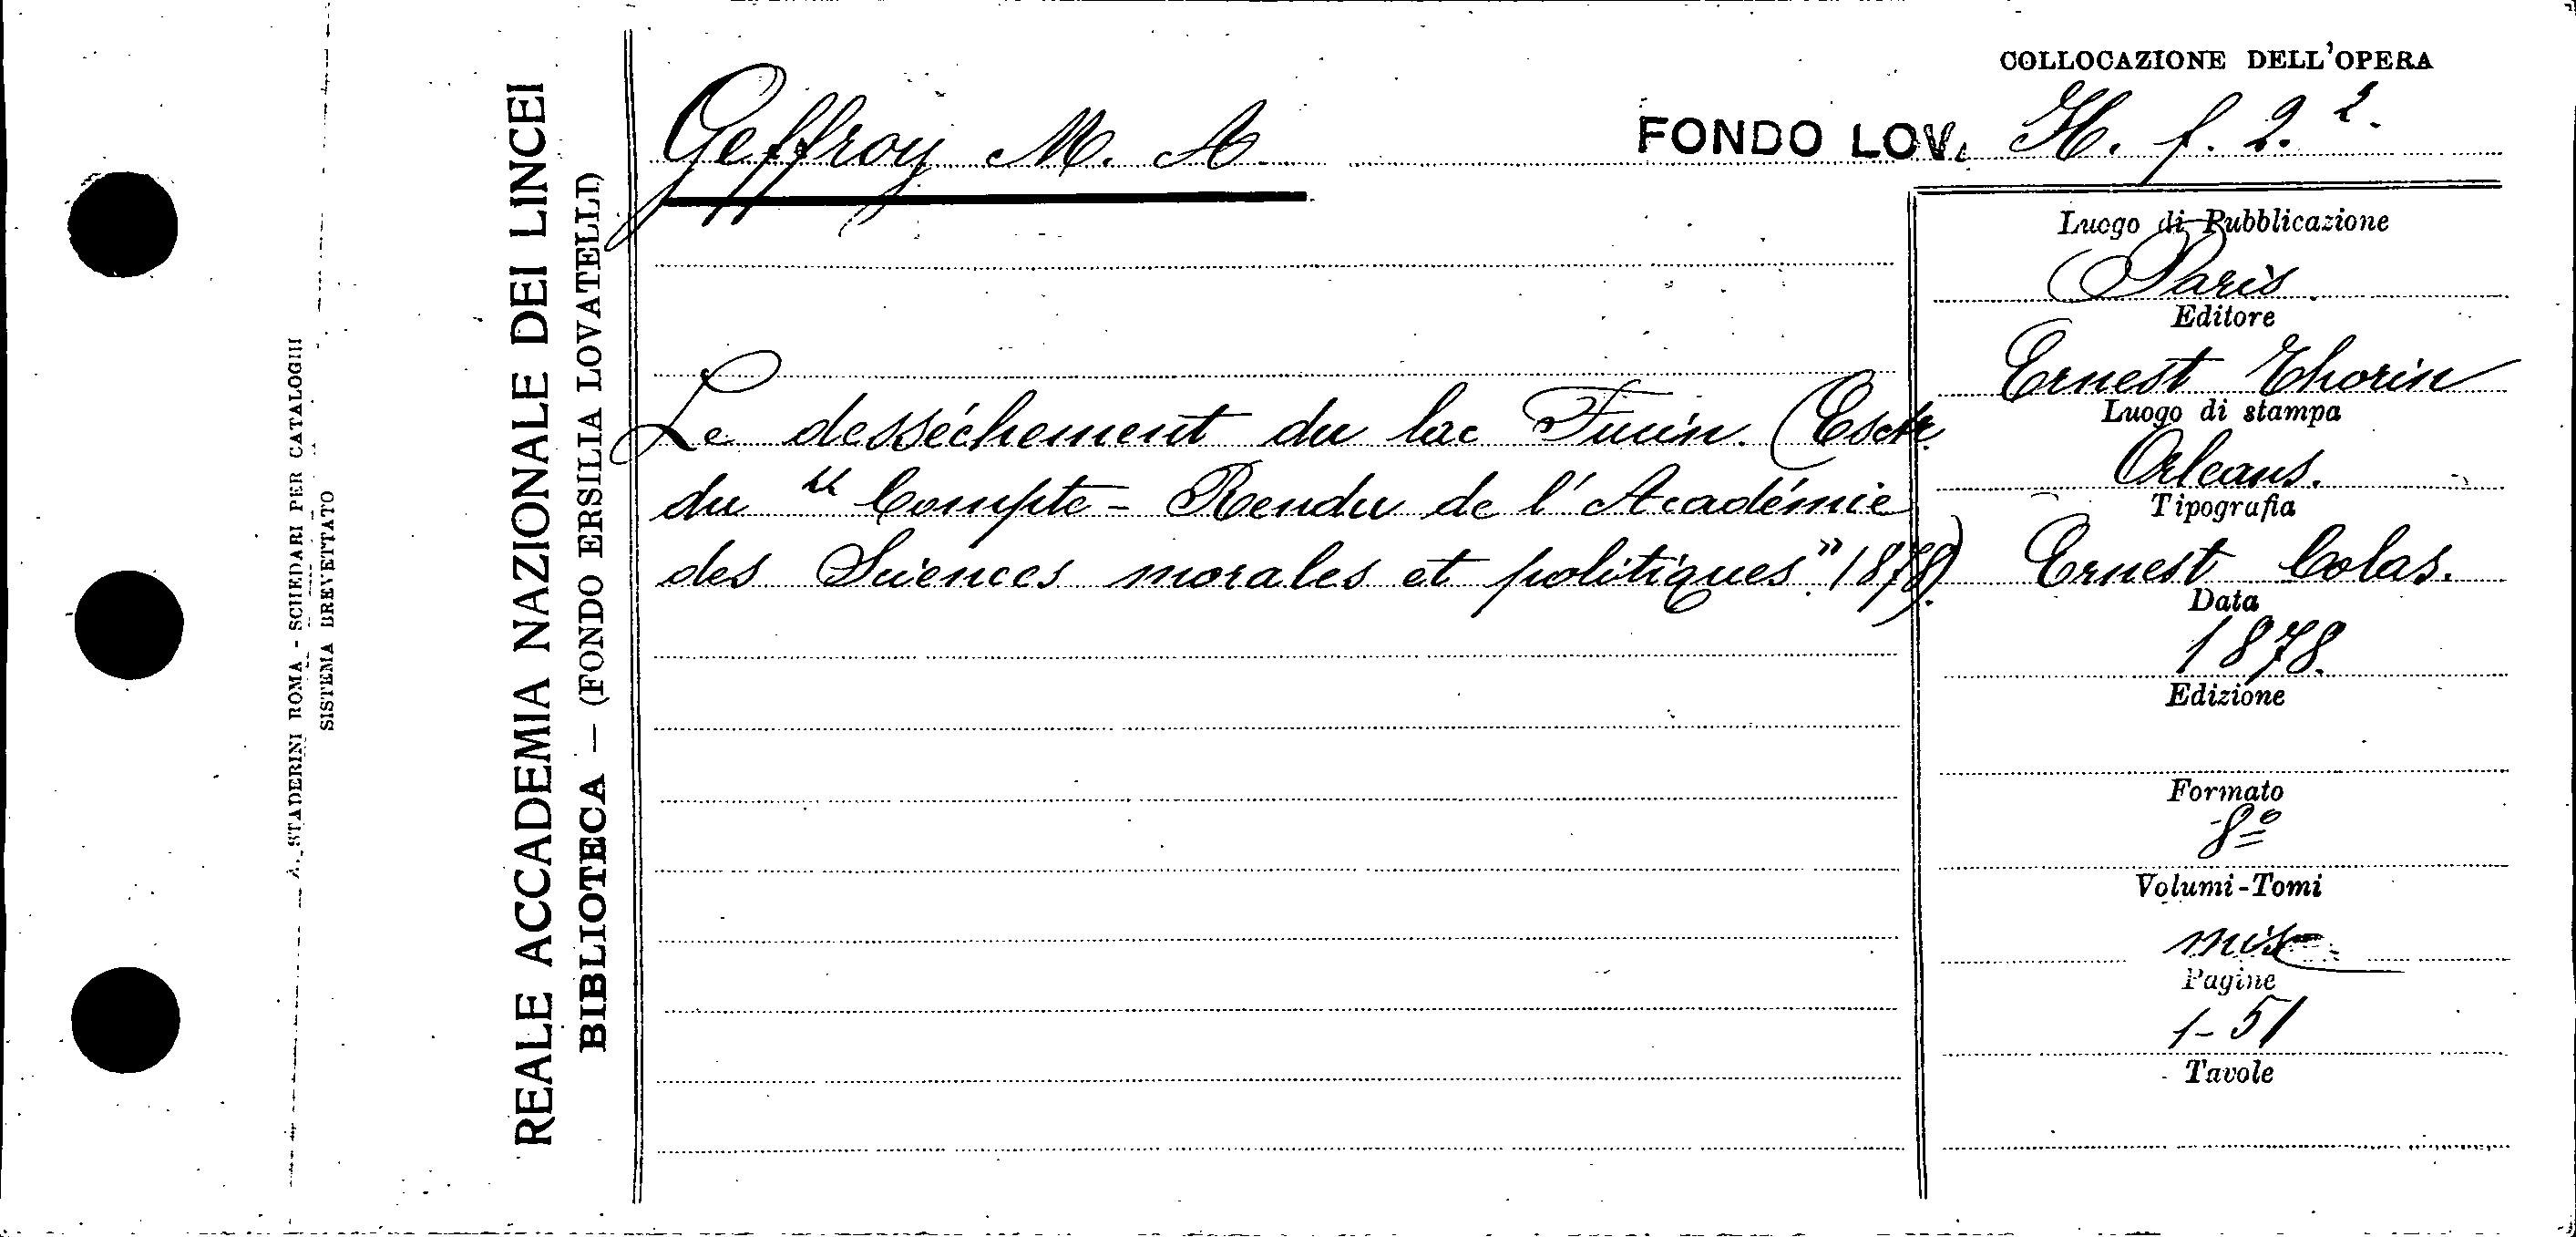 COLLOCAZIONE DELL'OPERA
Geffroy M. A.
FONDO LOV. H. f. 2. 2.
Le desséchement du lac Fucin. (Esctr.
du "Compte-Rendu de l'Académie
des Sciences morales et politiques." 1878).
Luogo di Pubblicazione
Paris
Editore
Ernest Thorin
Luogo di stampa
Orleans.
Tipografia
Ernest Colas.
Data
1878.
Edizione
Formato
8º
Volumi-Tomi
misc
Pagine
1-51
Tavole
REALE ACCADEMIA NAZIONALE DEI LINCEI
BIBLIOTECA — (FONDO ERSILIA LOVATELLI)
A. STADERINI ROMA - SCHEDARI PER CATALOGHI
SISTEMA BREVETTATO